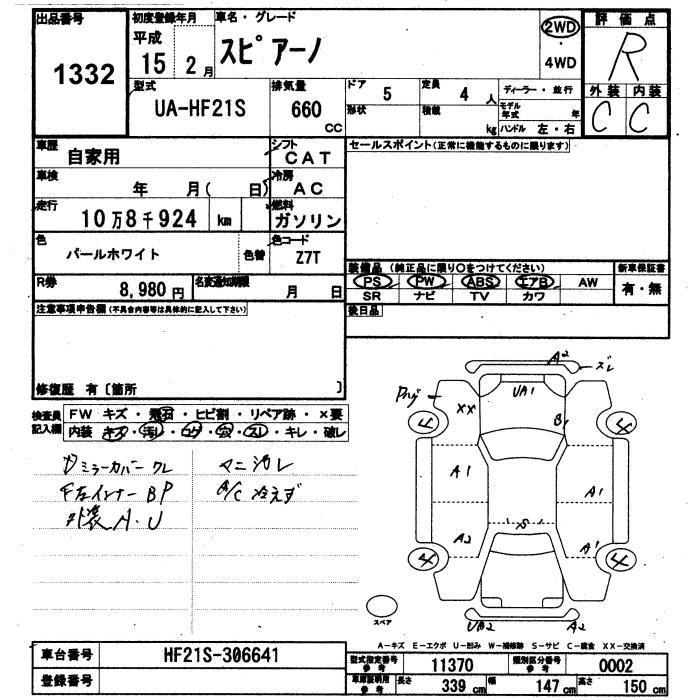 出品番号
1332
初度登録年月
平成
15 2 月
車名・グレード
スピアーノ
2WD
・
4WD
評価点
R
外装 内装
C C
型式
UA-HF21S
排気量
660
CC
ドア
5
形状
定員
4 人
積載
kg
ディーラー・並行
モデル年式 年
ハンドル 左・右
車歴
自家用
シフト
CAT
車検
年 月( 日)
冷房
AC
走行
10万8千924 km
燃料
ガソリン
色
パールホワイト
色替
色コード
Z7T
R券
8,980 円
名変通知期限
月 日
セールスポイント(正常に機能するものに限ります)
装備品(純正品に限り○をつけてください)
PS PW ABS エアB AW
SR ナビ TV カワ
新車保証書
有・無
後日品
注意事項申告欄(不具合内容等は具体的に記入して下さい)
修復歴 有〔箇所 〕
検査員記入欄
FW キズ・飛石・ヒビ割・リペア跡・×要
内装 キズ・汚レ・コゲ・穴・スレ・キレ・破レ
ミラーカバー ワレ
F左インナー BP
外装 A・U
マニ汚レ
A/C 冷えず
A2
ズレ
UA1
XX
B1
4 4
A1
A1
A2
S
A1
4 4
UB2
A2
スペア
A-キズ E-エクボ U-凹み W-補修跡 S-サビ C-腐食 XX-交換済
車台番号
HF21S-306641
登録番号
型式指定番号
参考
11370
類別区分番号
参考
0002
車庫証明用
参考
長さ
339 cm
幅
147 cm
高さ
150 cm